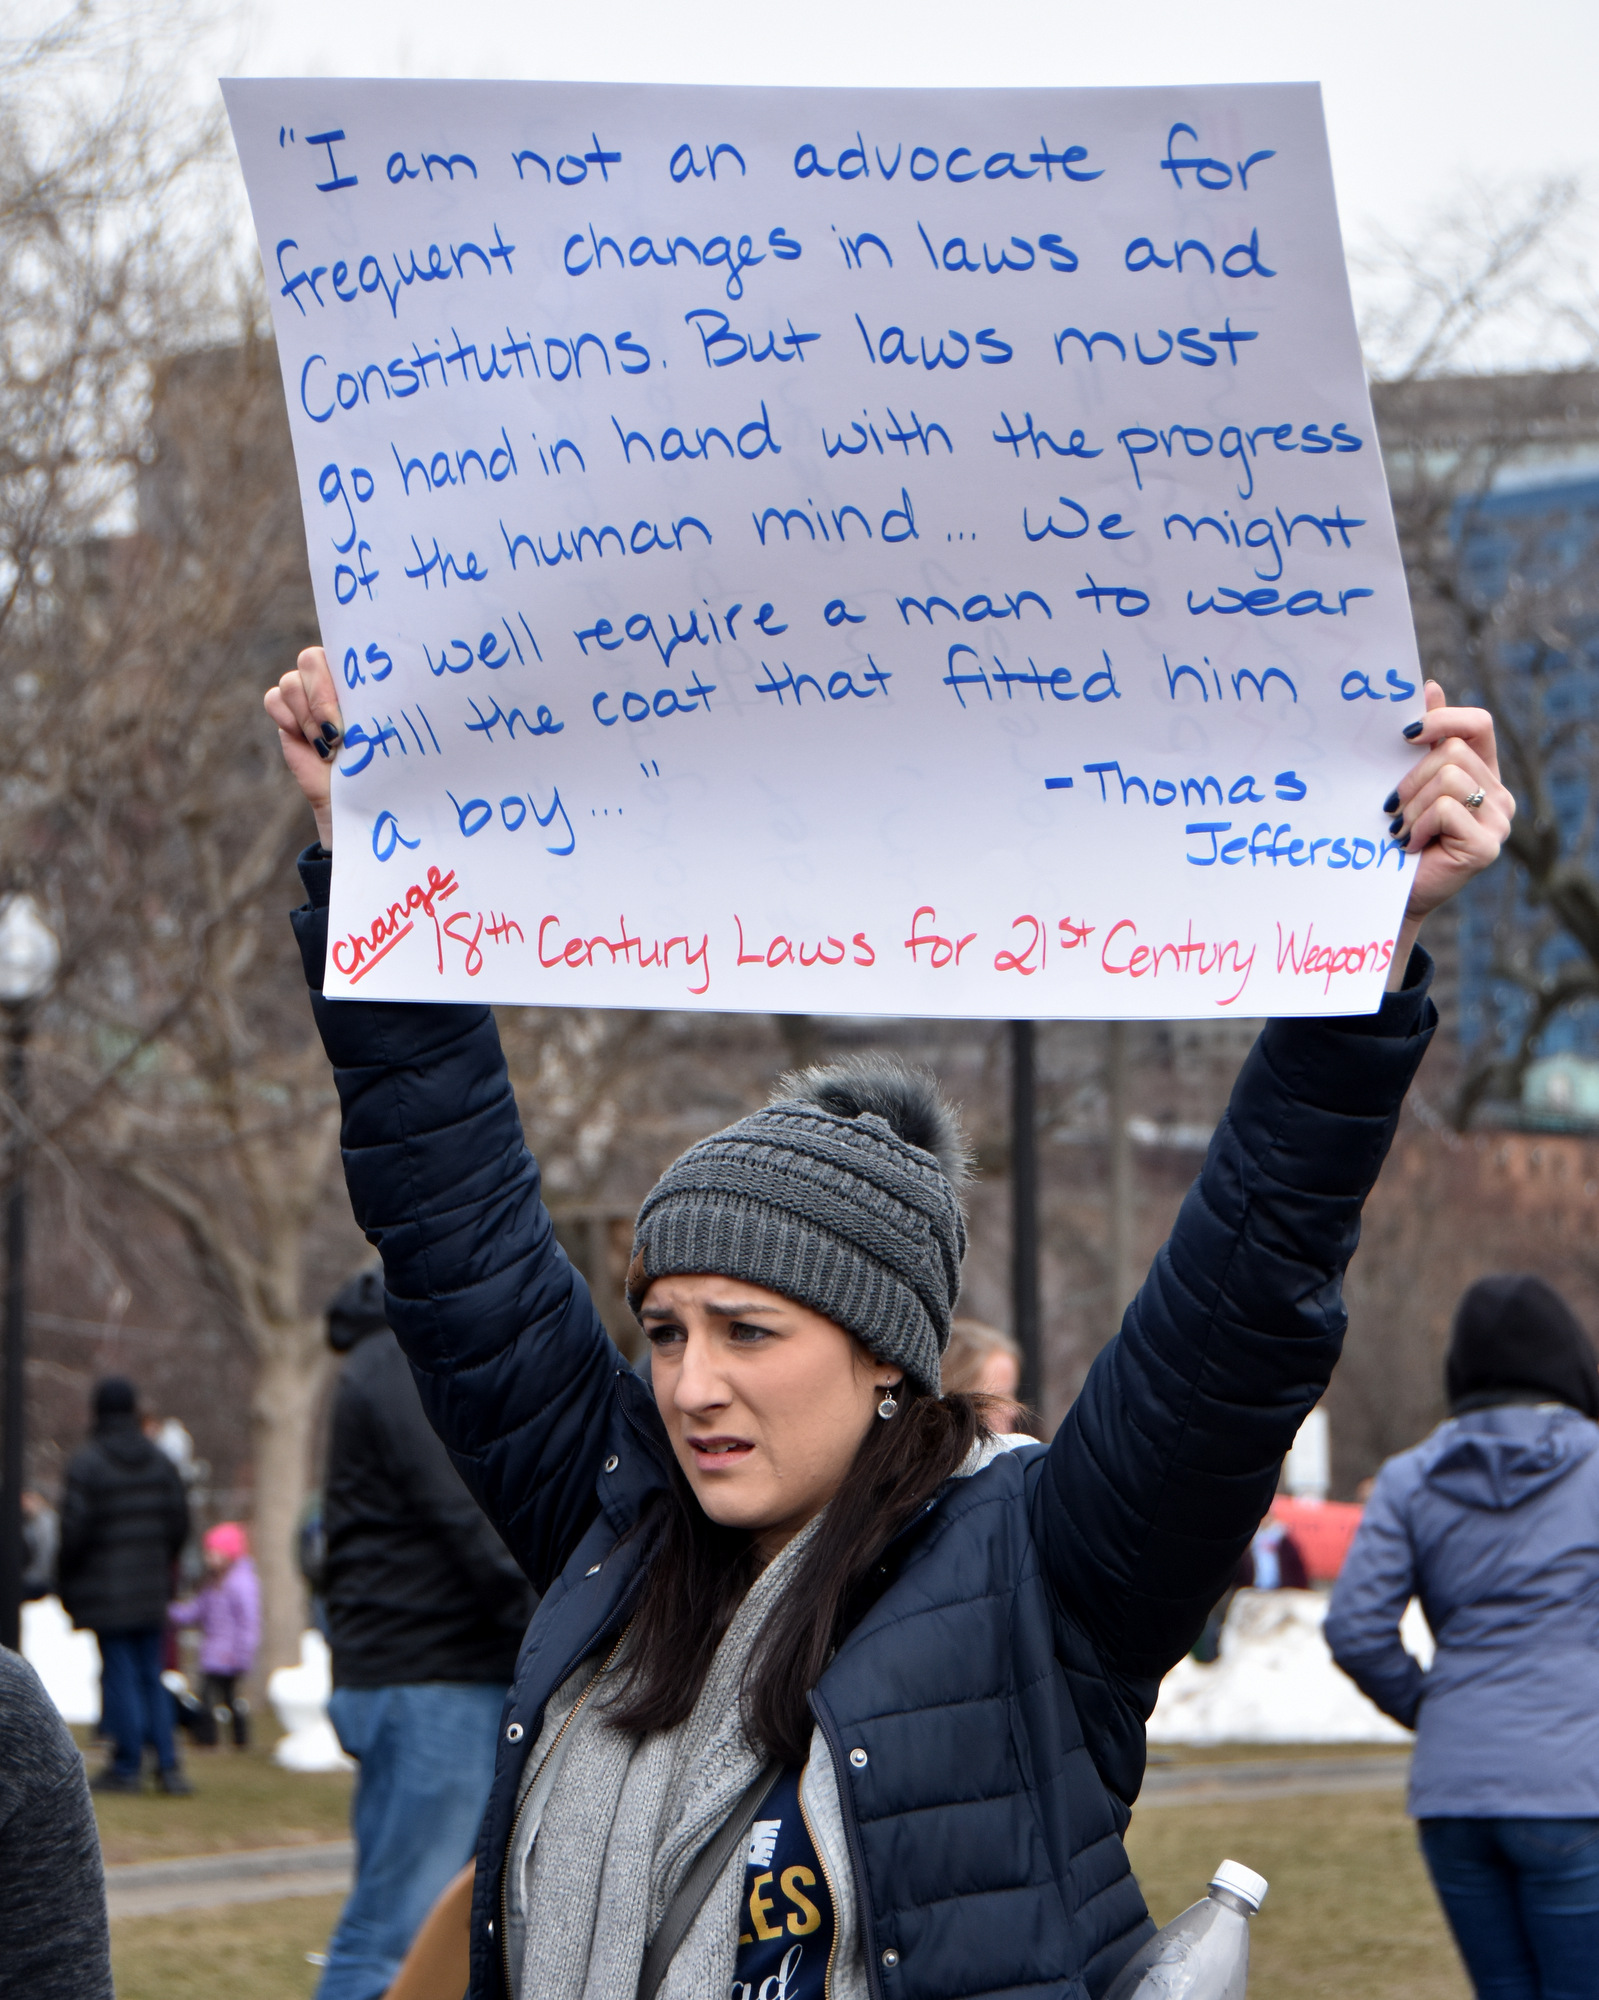 "I am not an advocate for
frequent changes in laws and
Constitutions. But laws must
go hand in hand with the progress
of the human mind... We might
as well require a man to wear
still the coat that fitted him as
a boy..."
-Thomas
Jefferson
change 18th Century Laws for 21st Century Weapons